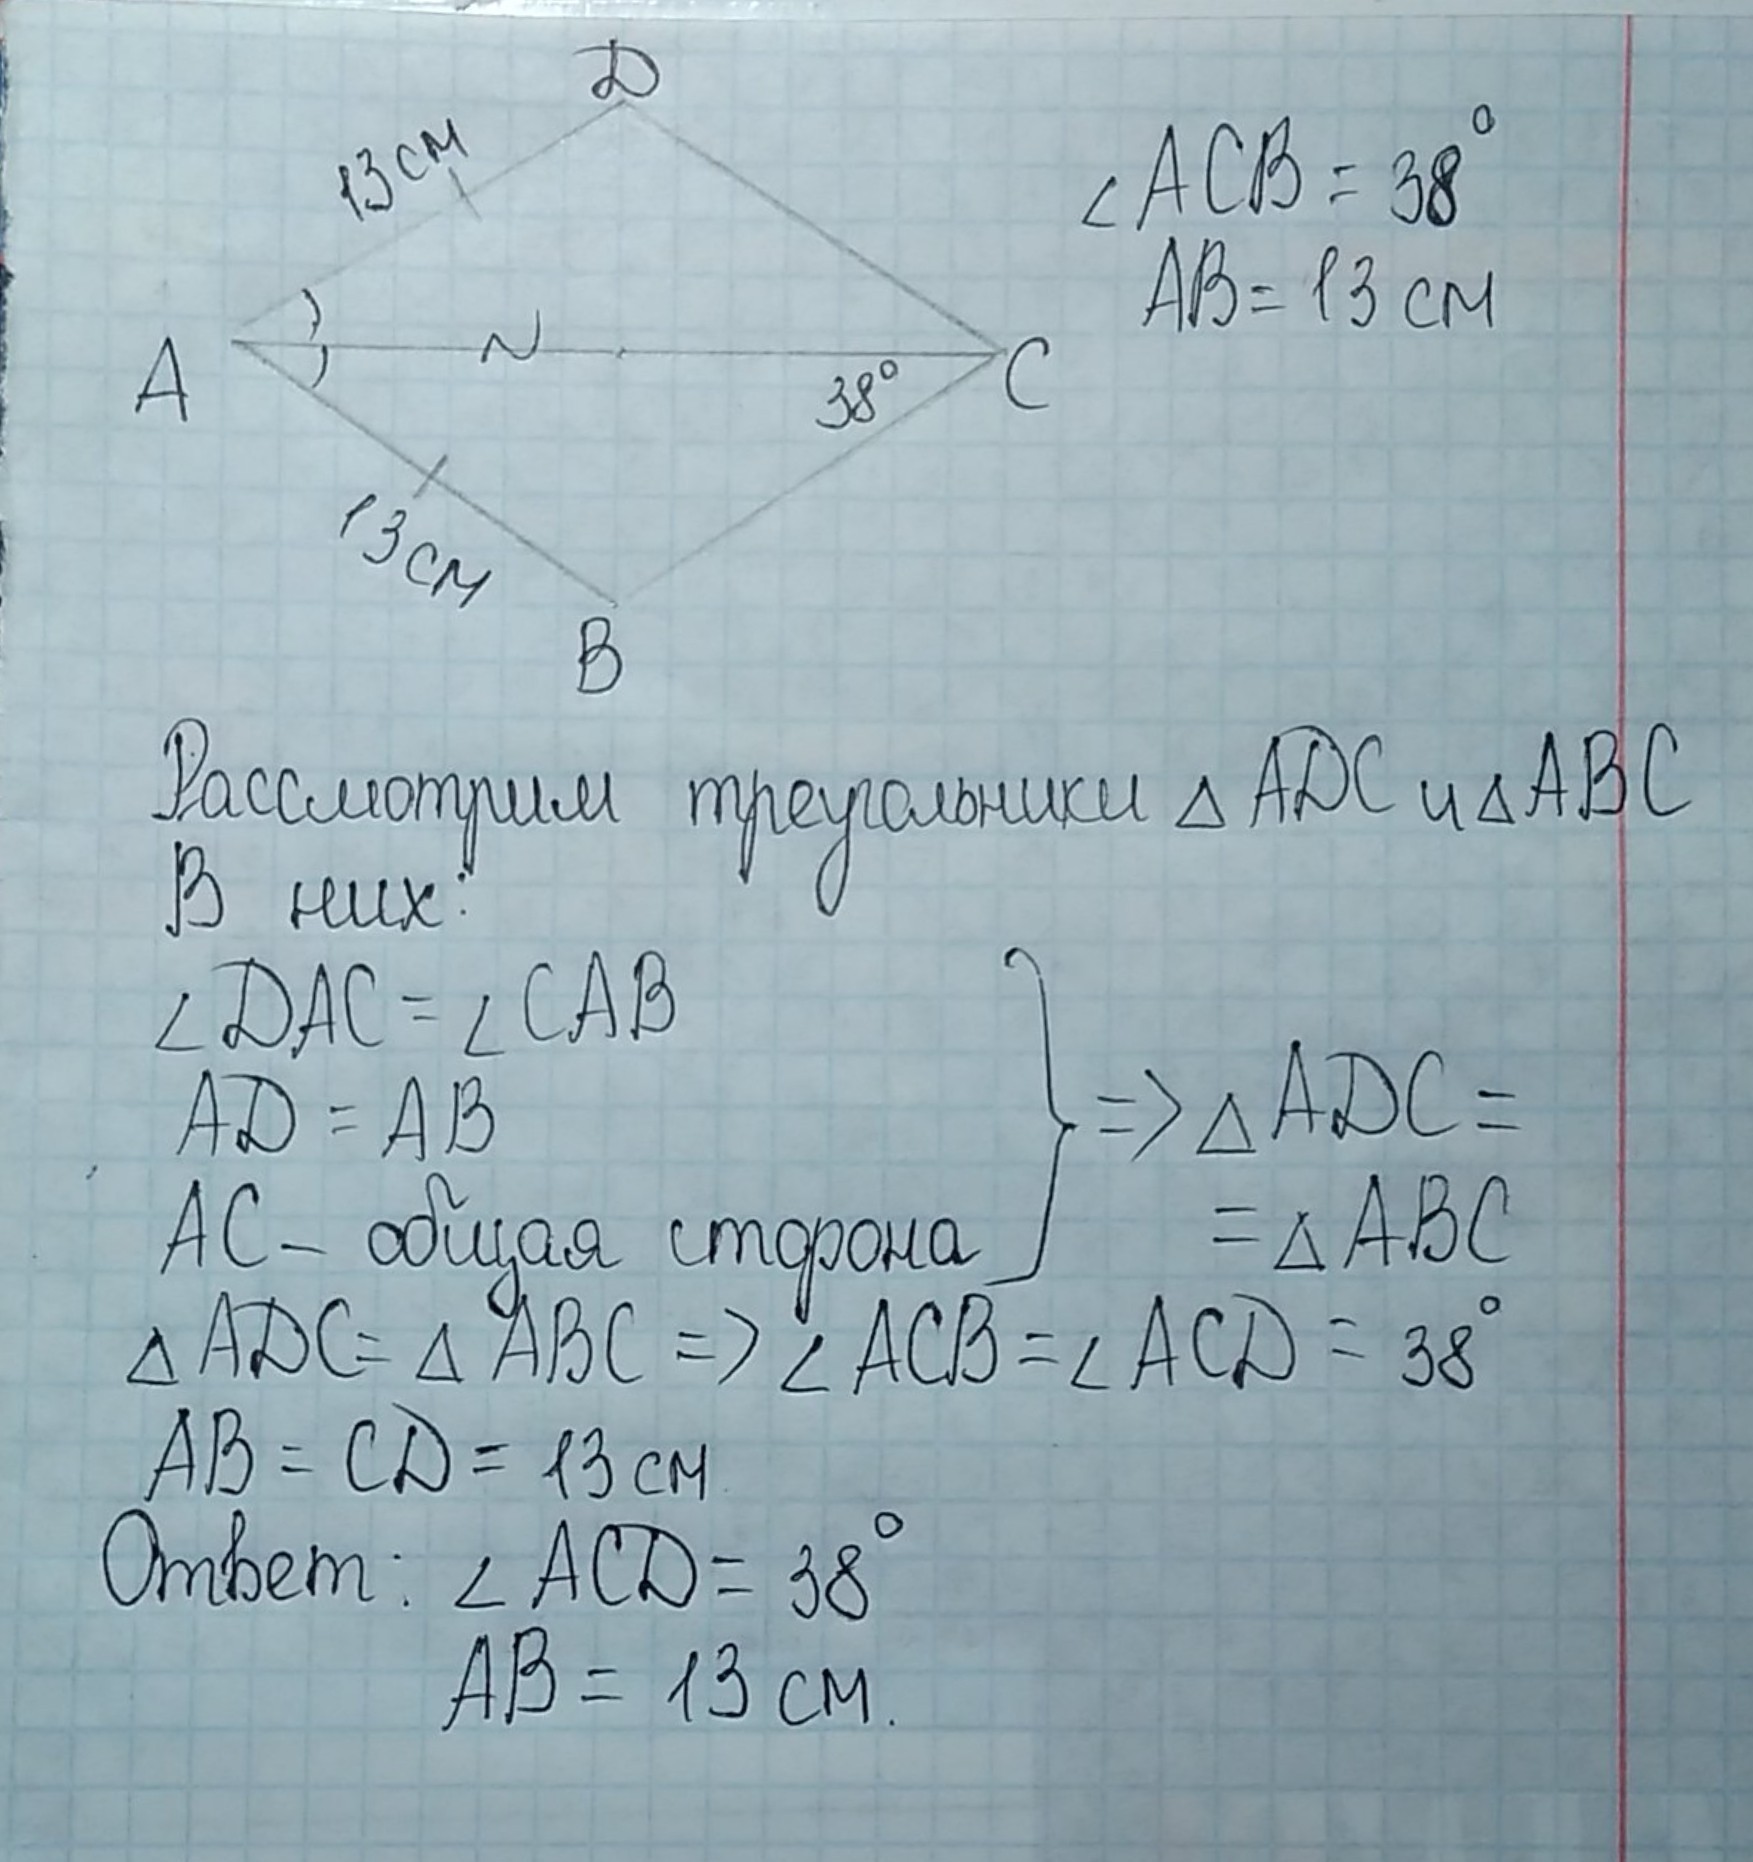 D
13 см
∠ACB = 38°
AB = 13 см
A
38°
C
13 см
B
Рассмотрим треугольники △ADC и △ABC
В них:
∠DAC = ∠CAB
AD = AB
=> △ADC =
AC – общая сторона
= △ABC
△ADC = △ABC => ∠ACB = ∠ACD = 38°
AB = CD = 13 см
Ответ: ∠ACD = 38°
AB = 13 см.